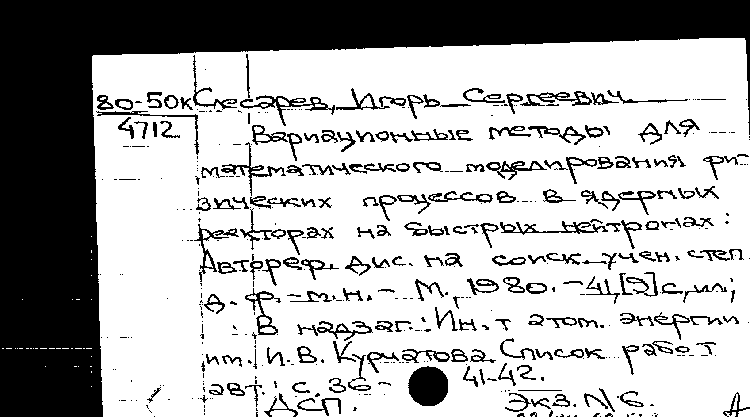 80-50к Слесарев, Игорь Сергеевич.
4712 Вариационные методы для
математического моделирования фи-
зических процессов в ядерных
реакторах на быстрых нейтронах:
Автореф. дис. на соиск. учен. степ.
д. ф.-м.н. - М., 1980. - 41, [2] с, ил;
В надзаг.: Ин.т атом. энергии
им. И.В. Курчатова. Список работ
авт.: с. 36- 41-42.
ДСП. Экз. N 6.